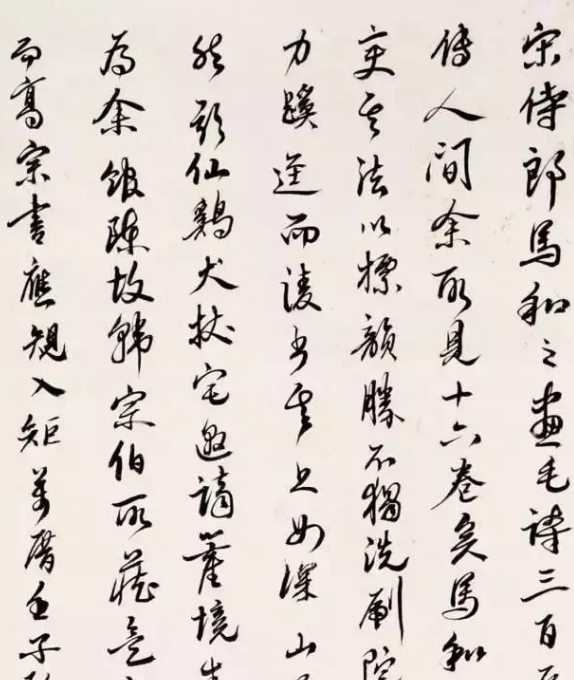 宋侍郎馬和之畫毛詩三百
傳人間余所見十六卷矣馬和
其法以標韻勝不獨洗刷院
力蹊逕而其上如深山
仙鷄犬拔宅謫境
為余館師故韓宗伯所藏
而高宗書應規入矩萬曆壬子